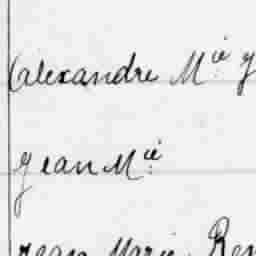 (alexandre Mie
Jean Mie
Jean Marie, Ren